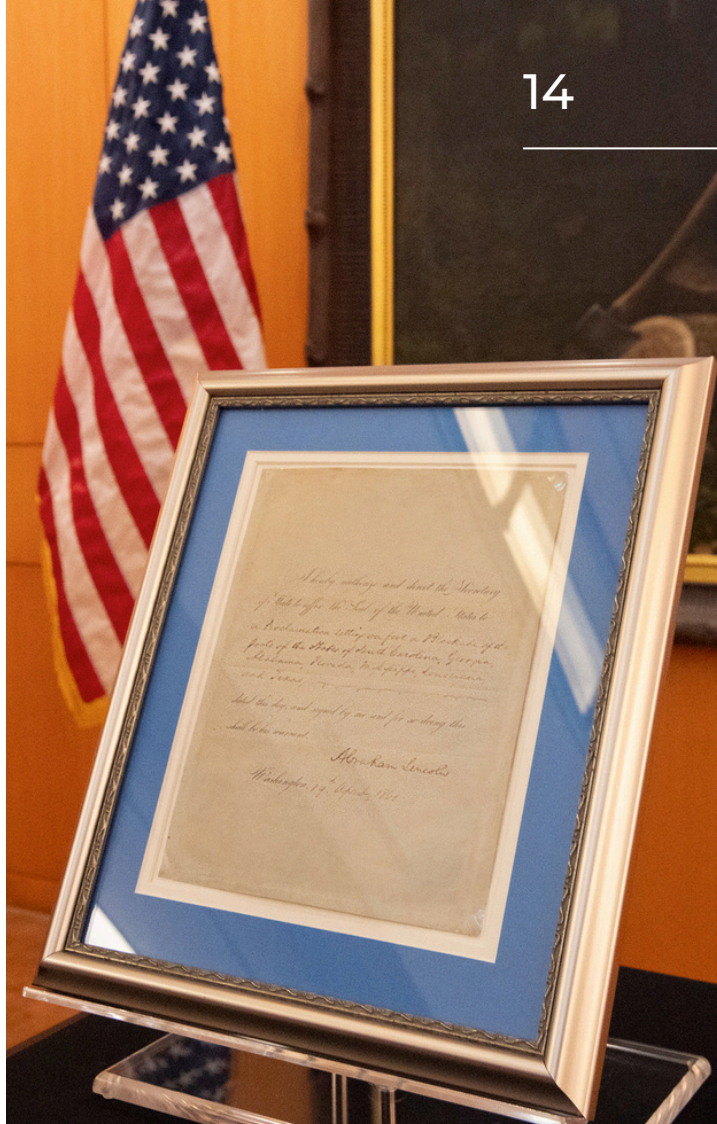 14
I hereby authorize and direct the Secretary
of State to affix the Seal of the United States to
a Proclamation setting on foot a Blockade of the
Ports of the States of South Carolina, Georgia,
Alabama, Florida, Mississippi, Louisiana,
and Texas
dated this day, and signed by me and for so doing this
shall be his warrant
Abraham Lincoln
Washington, 19th April, 1861